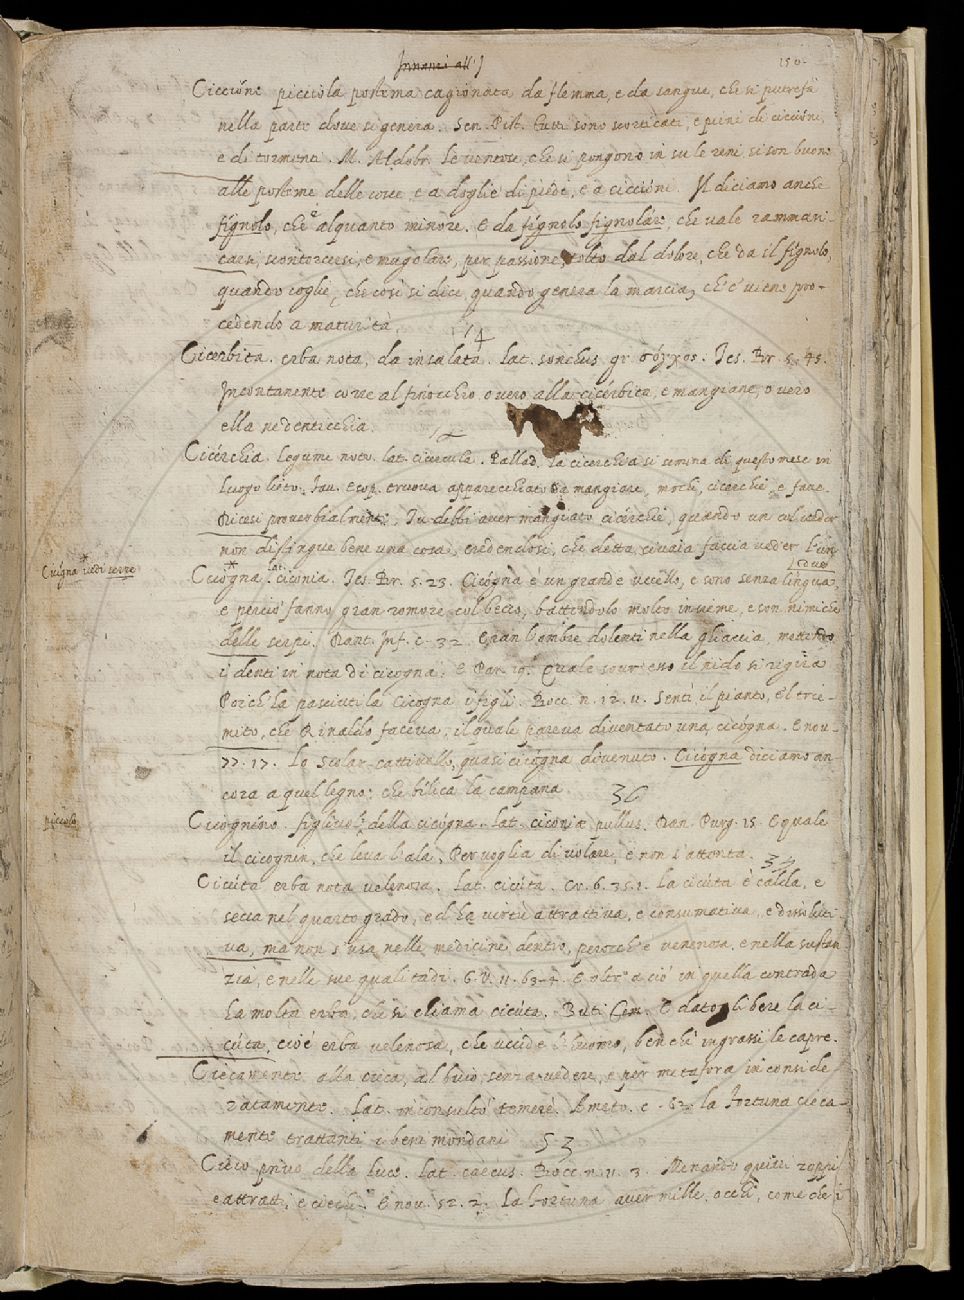 Innanzi all' I
150.
Cicciòne picciola postema cagionata da flemma, e da sangue, che si putrefà
nella parte dove si genera. Sen. Pist. tutti sono scorticati, e pieni di ciccioni,
e di tormenti. M. Aldobr. le ventose, che si pongono in su le reni, si son buone
alle posteme delle cosce e a doglie di piedi, e a ciccióni. Il diciamo anche
fígnolo, che è alquanto minore. E da fígnolo fignolàre, che vale rammari-
carsi, scontorcersi, e magolare, per passione, e volto dal dolore, che dà il fignolo,
quando coglie, che così si dice, quando genera la marcia, ch'è viene pro-
cedendo a maturità.
14
Cicérbita. erba nota, da insalata. Lat. sonchus gr. σόγχος. Tes. Br. 5. 45.
Incontanente corre al finocchio, overo alla cicérbita, e mangiane, overo
ella ne dentecchia.
Cicérchia. Legume noto. lat. cicercula. Pallad. la cicerchia si semina di questo mese in
luogo lieto. Fav. Esop. e trova apparecchiato da mangiare, mochi, cicerchie, e fave.
Dicesi proverbialmente, Tu debbi aver mangiato cicérchie, quando un col veder
non distingue bene una cosa, credendosi, che detta civaia faccia veder l'un
due
Cicigna * vedi serpe
* Cicógna. lat. ciconia. Tes. Br. 5. 23. Cicógna è un grande uccello, e sono senza lingua
e perciò fanno gran romore col becco, battendolo molto insieme, e son nimiche
delle serpi. Dant. Inf. c. 32. Eran l'ombre dolenti nella ghiaccia, mettendo
i denti in nota di cicogna. E Par. 19. Quale sovr'esso il nido si rigira
Poich'ha pasciuti la Cicogna i figli. Bocc. n. 12. 11. Sentì il pianto, e 'l tre-
mito, che Rinaldo faceva, il quale pareva diventato una cicógna. E nov.
77. 17. Lo Scolar cattivello, quasi cicógna divenuto. Cicógna diciamo an-
cora a quel legno, che bilica la campana.
36
piccolo
Cicognino. figliuolo della cicógna. Lat. ciconiæ pullus. Dan. Purg. 25. E quale
il cicognin, che leva l'ala, Per voglia di volare, e non s'attenta.
34
Cicúta erba nota velenosa. Lat. cicúta. Cr. 6. 35. 1. la cicúta è calda, e
secca nel quarto grado, ed ha virtù attrattiva, e consumativa, e dissoluti-
va, ma non s'usa nelle medicine dentro, perocch'è venenosa, e nella sustan
zia, e nelle sue qualitadi. G. V. 11. 63. 4. E oltre a ciò in quella contrada
ha molta erba, che si chiama cicúta. Buti Com. E dato a bere la ci-
cúta, cioè erba velenosa, che uccide l'huomo, benchè ingrassi le capre.
Ciecamente alla cieca, al buio, senza vedere, e per metafora inconside-
ratamente. Lat. inconsultò temerè. Ameto. c. 62. la fortuna cieca-
mente trattanti i beni mondani.
53
Cieco privo della luce. Lat. caecus. Bocc. n. 11. 3. Menando quivi zoppi
e attratti, e ciechi. E nov. 52. 2. La fortuna aver mille occhi, come che i